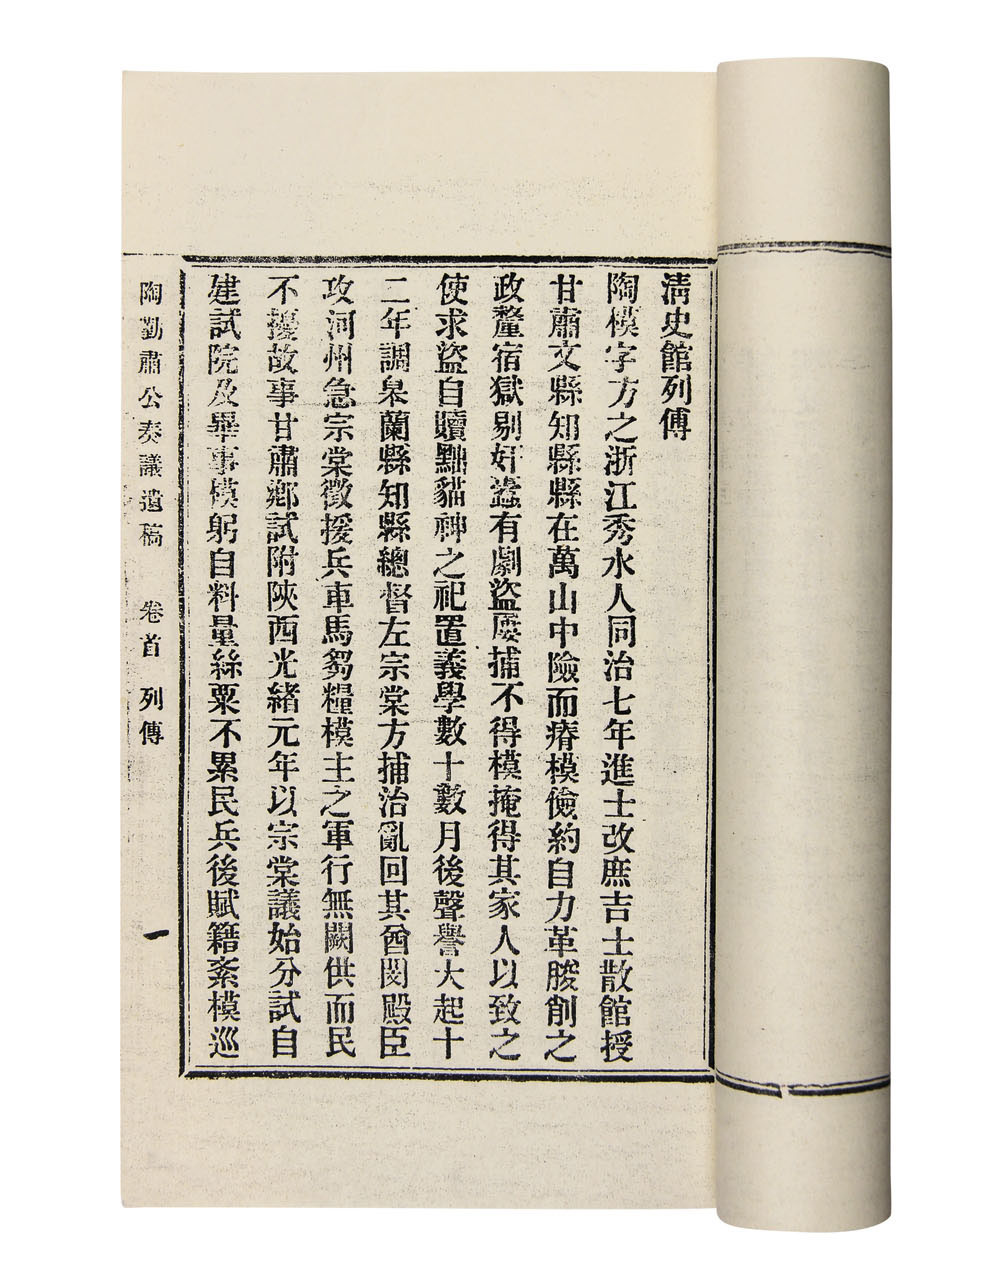 清史館列傳
陶模字方之浙江秀水人同治七年進士改庶吉士散館授
甘肅文縣知縣縣在萬山中險而瘠模儉約自力革朘削之
政釐宿獄剔奸蠹有劇盜屢捕不得模掩得其家人以致之
使求盜自贖黜貓神之祀置義學數十數月後聲譽大起十
二年調皋蘭縣知縣總督左宗棠方捕治亂回其酋閔殿臣
攻河州急宗棠徵援兵車馬芻糧模主之軍行無闕供而民
不擾故事甘肅鄉試附陝西光緒元年以宗棠議始分試自
建試院及畢事模躬自料量絲粟不累民兵後賦籍紊模巡
陶勤肅公奏議遺稿 卷首 列傳 一